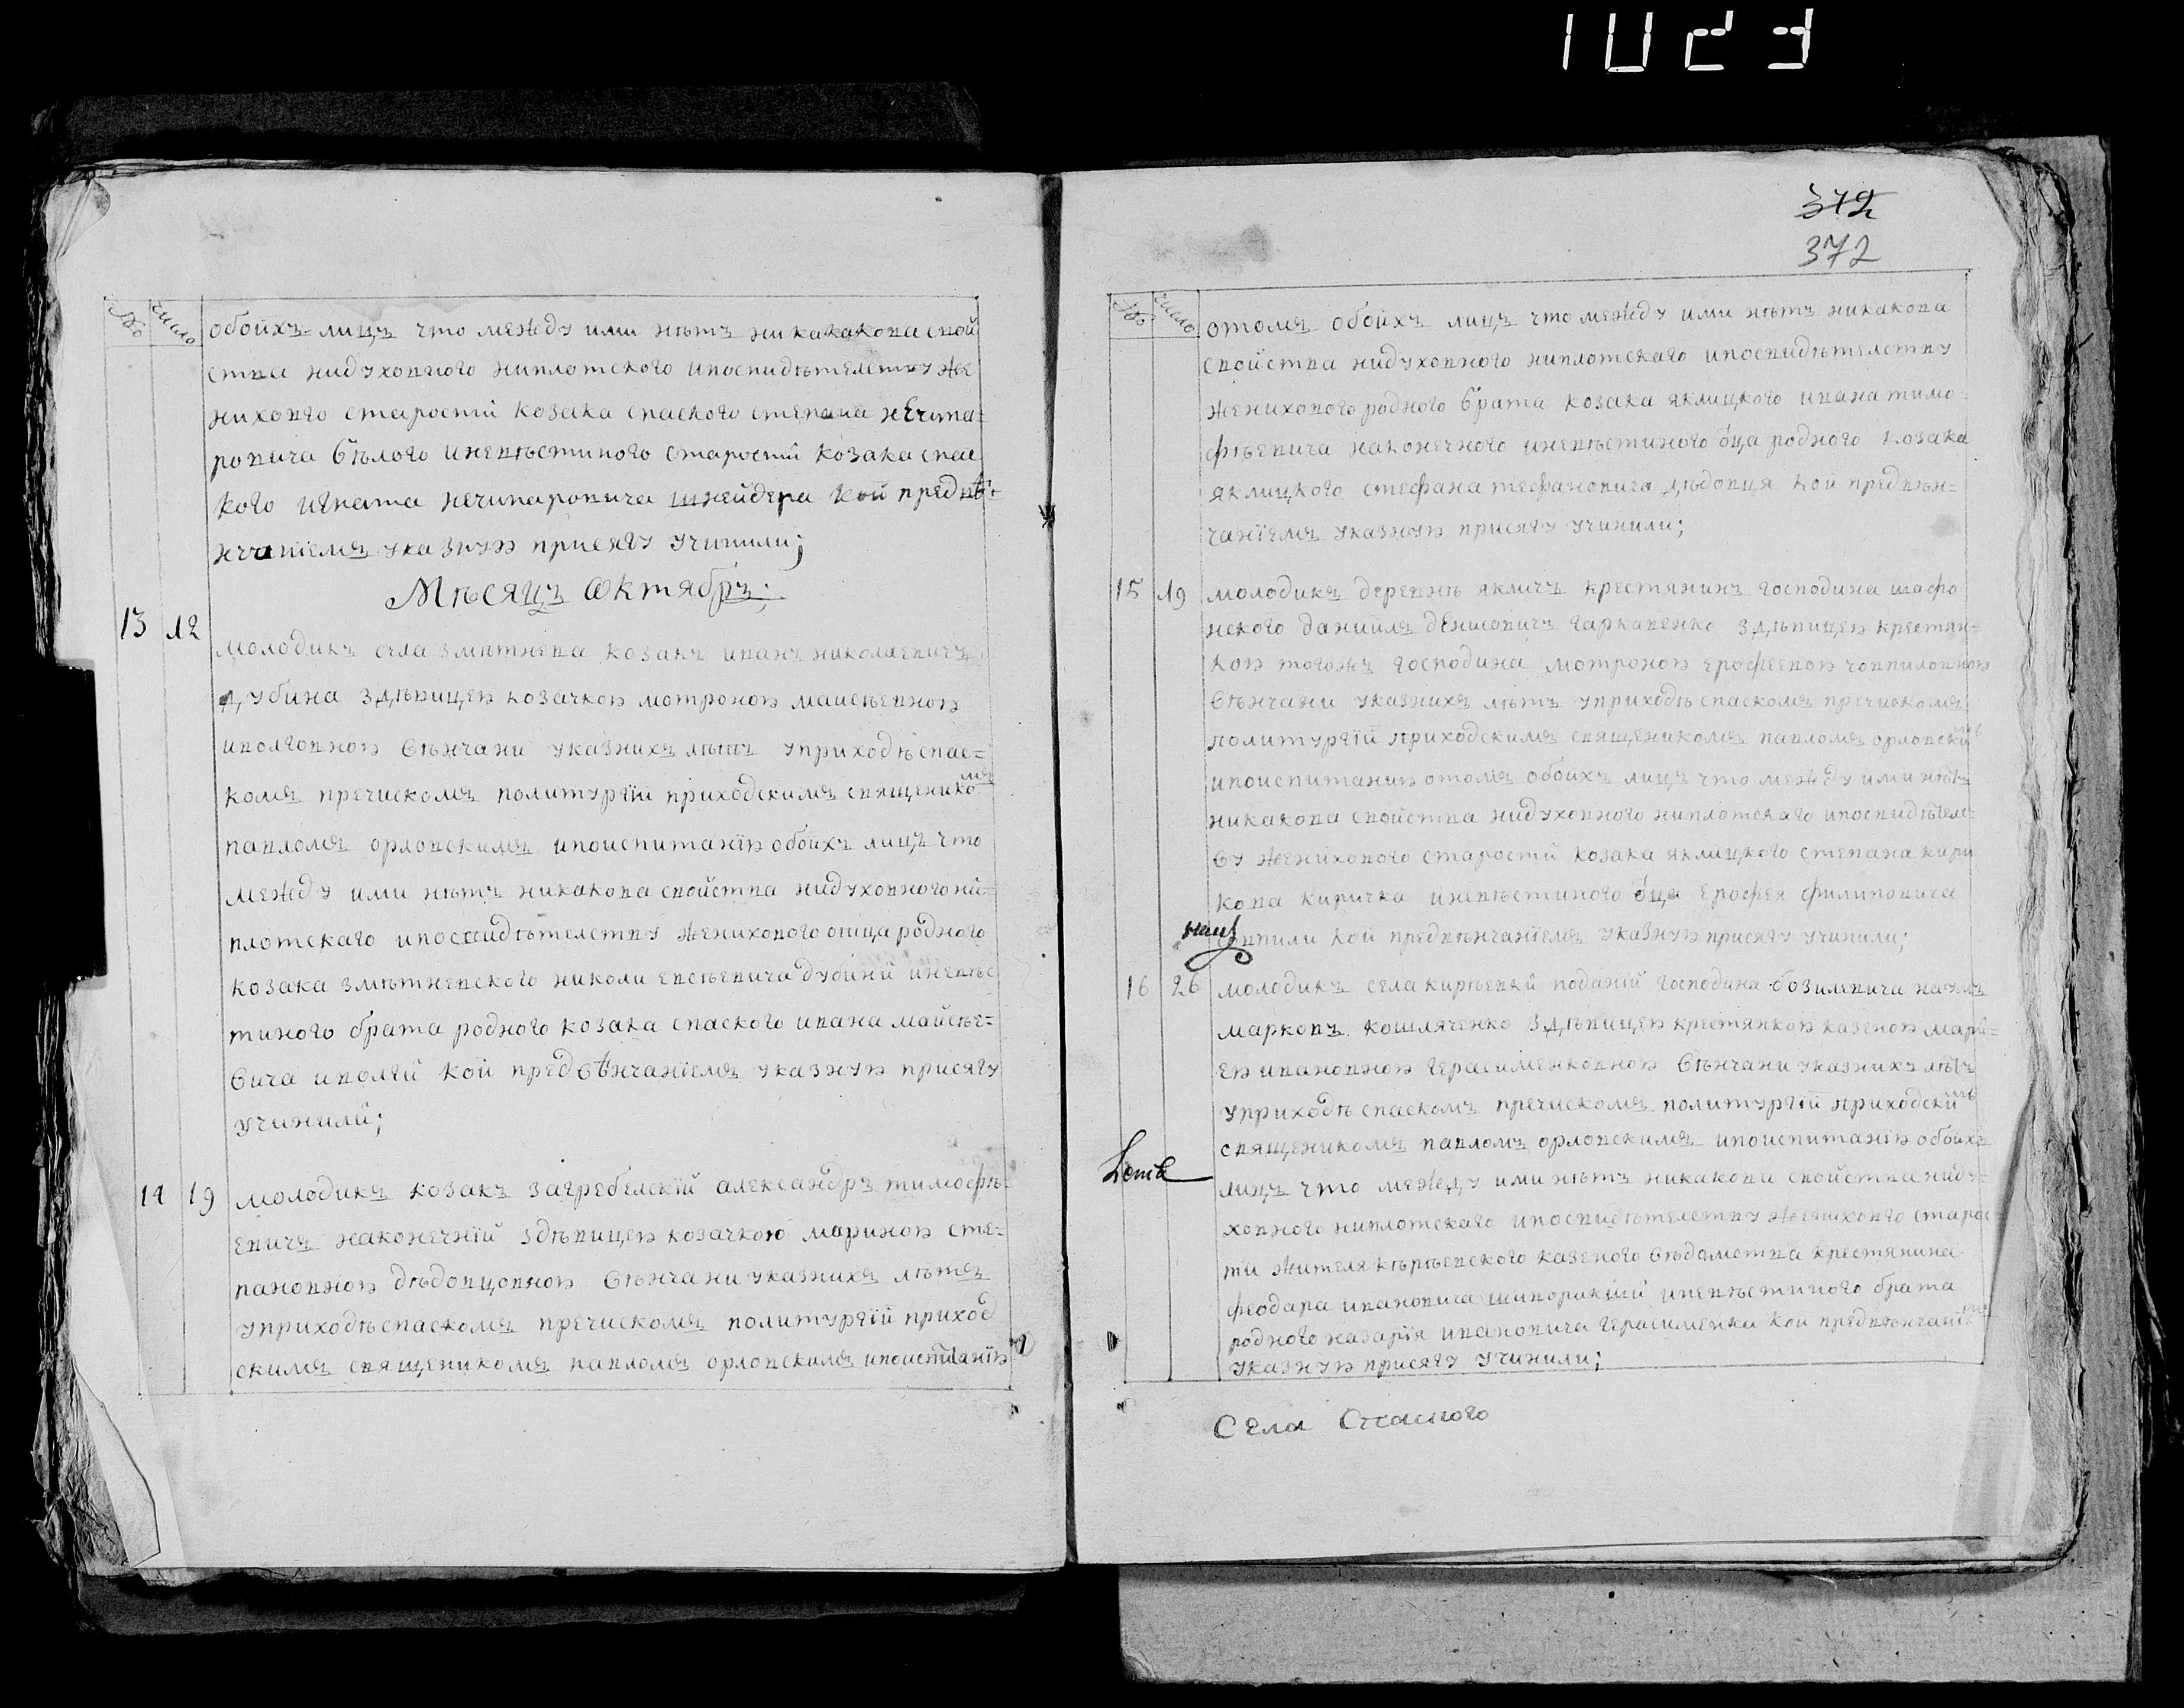 1023
№о число
обойхъ-лицъ что между ими нѣтъ никакакова свой
ства нидуховного ниплотского ипосвидѣтелству же
нихового старостй козака спаского степана нечипа=
ровича бѣлого иневѣстиного старостй козака спас
кого игната нечипаровича шнейдера кой предвѣ=
нчанїемъ указную присягу учинили;
Мѣсяцъ Октябръ:
13 12 молодикъ села змѣтнева козакъ иванъ николаевичъ
дубина здѣвицею козачкою мотроною маисѣевною
иволговною вѣнчани указнихъ лѣтъ уприходѣ спас=
комъ пречискомъ политургїй приходскимъ священикомъ
павломъ орловскимъ ипоиспитанїю обойхъ лицъ что
между ими нѣтъ никакова свойства нидуховного ни=
плотскаго ипосвидѣтелству женихового отца родного
козака змѣтневского николи евсѣевича дубинй иневѣс
тиного брата родного козака спаского ивана майсѣе=
вича иволгй кой предвѣнчанїемъ указную присягу
учинилй;
14 19 молодикъ козакъ загребелскїй александръ тимофѣ=
евичъ наконечнїй здѣвицею козачкою мариною сте=
пановною дѣдовцовною вѣнчани указнихъ лѣтъ
уприходѣ спаскомъ пречискомъ политургїй приход
скимъ священикомъ павломъ орловскимъ ипоиспитанїю
372
372
№о число
отомъ обойхъ лицъ что между ими нѣтъ никакова
свойства нидуховного ниплотскаго ипосвидѣтелству
женихового родного брата козака яклицкого ивана тимо=
фѣевича наконечного иневѣстиного оца родного козака
яклицкого стефана тефановича дѣдовця кой предвѣн=
чанїемъ указную присягу учинили;
15 19 молодикъ деревнѣ якличъ крестянинъ господина шафо
нского данийлъ денисовичъ гаркавенко здѣвицею крестян=
кою тогожъ господина мотроною ерофеевою човпиловною
вѣнчани указнихъ лѣтъ уприходѣ спаскомъ пречискомъ
политургїй приходскимъ священикомъ павломъ орловскимъ
ипоиспитанию отомъ обоихъ лицъ что между ими нѣтъ
никакова свойства нидуховного ниплотскаго ипосвидѣтелс=
ву женихового старостй козака яклицкого степана кири
кова киричка иневѣстиного оца ерофея филиповича
човпили кой предвѣнчанїемъ указную присягу учинили;
16 26 молодикъ села кирѣевкй поданїй господина бозилевича наумъ
марковъ кошляченко здѣвицею крестянкою казеною марй=
ею ивановною герасименковною вѣнчани указнихъ лѣтъ
уприходѣ спаскомъ пречискомъ политургїй приходскимъ
священикомъ павломъ орловскимъ ипоиспитанїю обойхъ
лицъ что между ими нѣтъ никакова свойства ниду=
ховного ниплотскаго ипосвидѣтелству женихового старос
ти жителя кѣрѣевского казеного вѣдомства крестянина
феодара ивановича шипорикшй иневѣстиного брата
родного назарїя ивановича герасименка кои предвѣнчанїемъ
указную присягу учинили;
Села Спаского